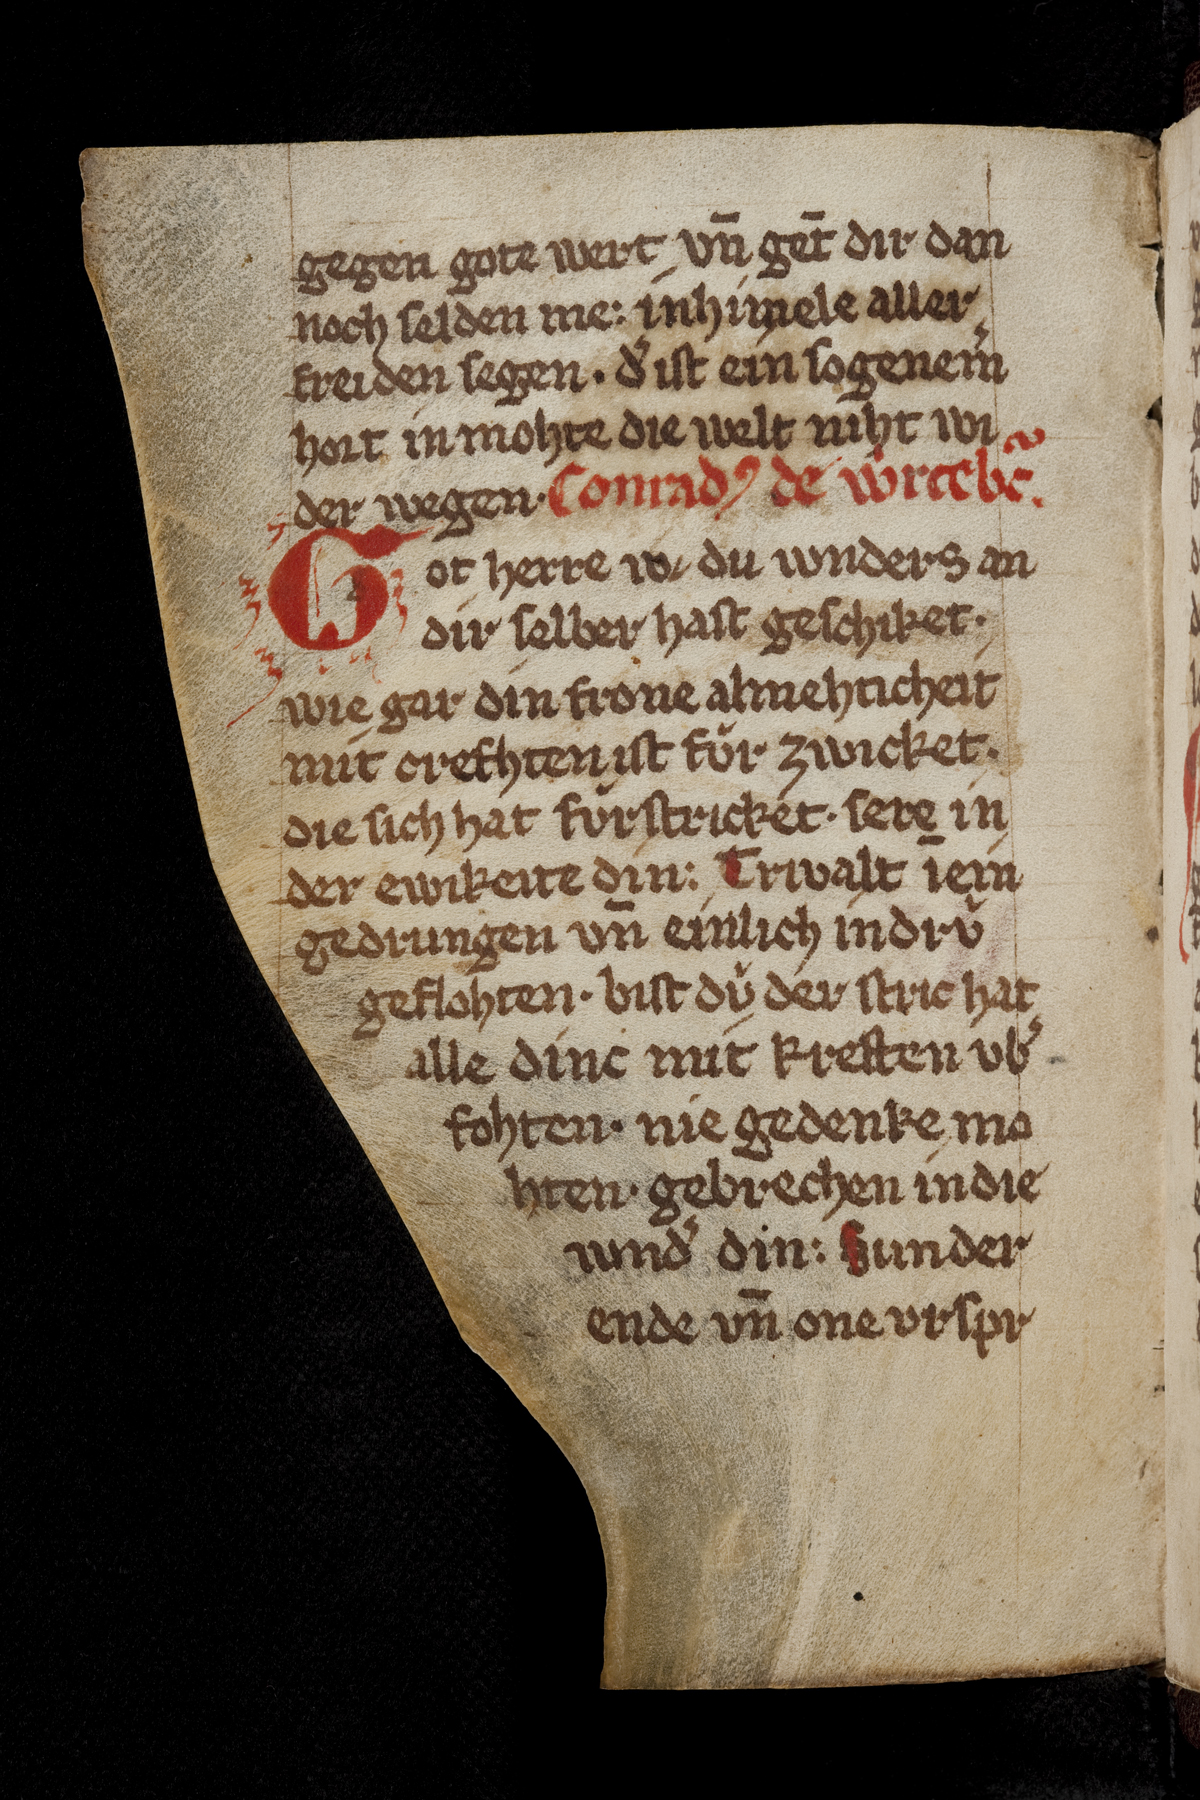 gegen gote wert vn̄ get̄ dir dan
noch selden me: in himele aller
freiden segen · d' ist ein so genem̄
hort in mohte die welt niht wi
der wegen · Conrad⁹ de wrceb'c.
Got herre w₂ du wnders an
dir selber hast geschiket ·
wie gar din frone almehticheit
mit crefhten ist fůr zwicket ·
die sich hat fůrstricket · sere in
der ewikeite din: Trivalt īein
gedrungen vn̄ einlich in drů
geflohten · bist dů der stric hat
alle dinc mit kreften vb'
fohten · nie gedenke mo
hten · gebrechen in die
wnd' din: Sunder
ende vn̄ one vrspr